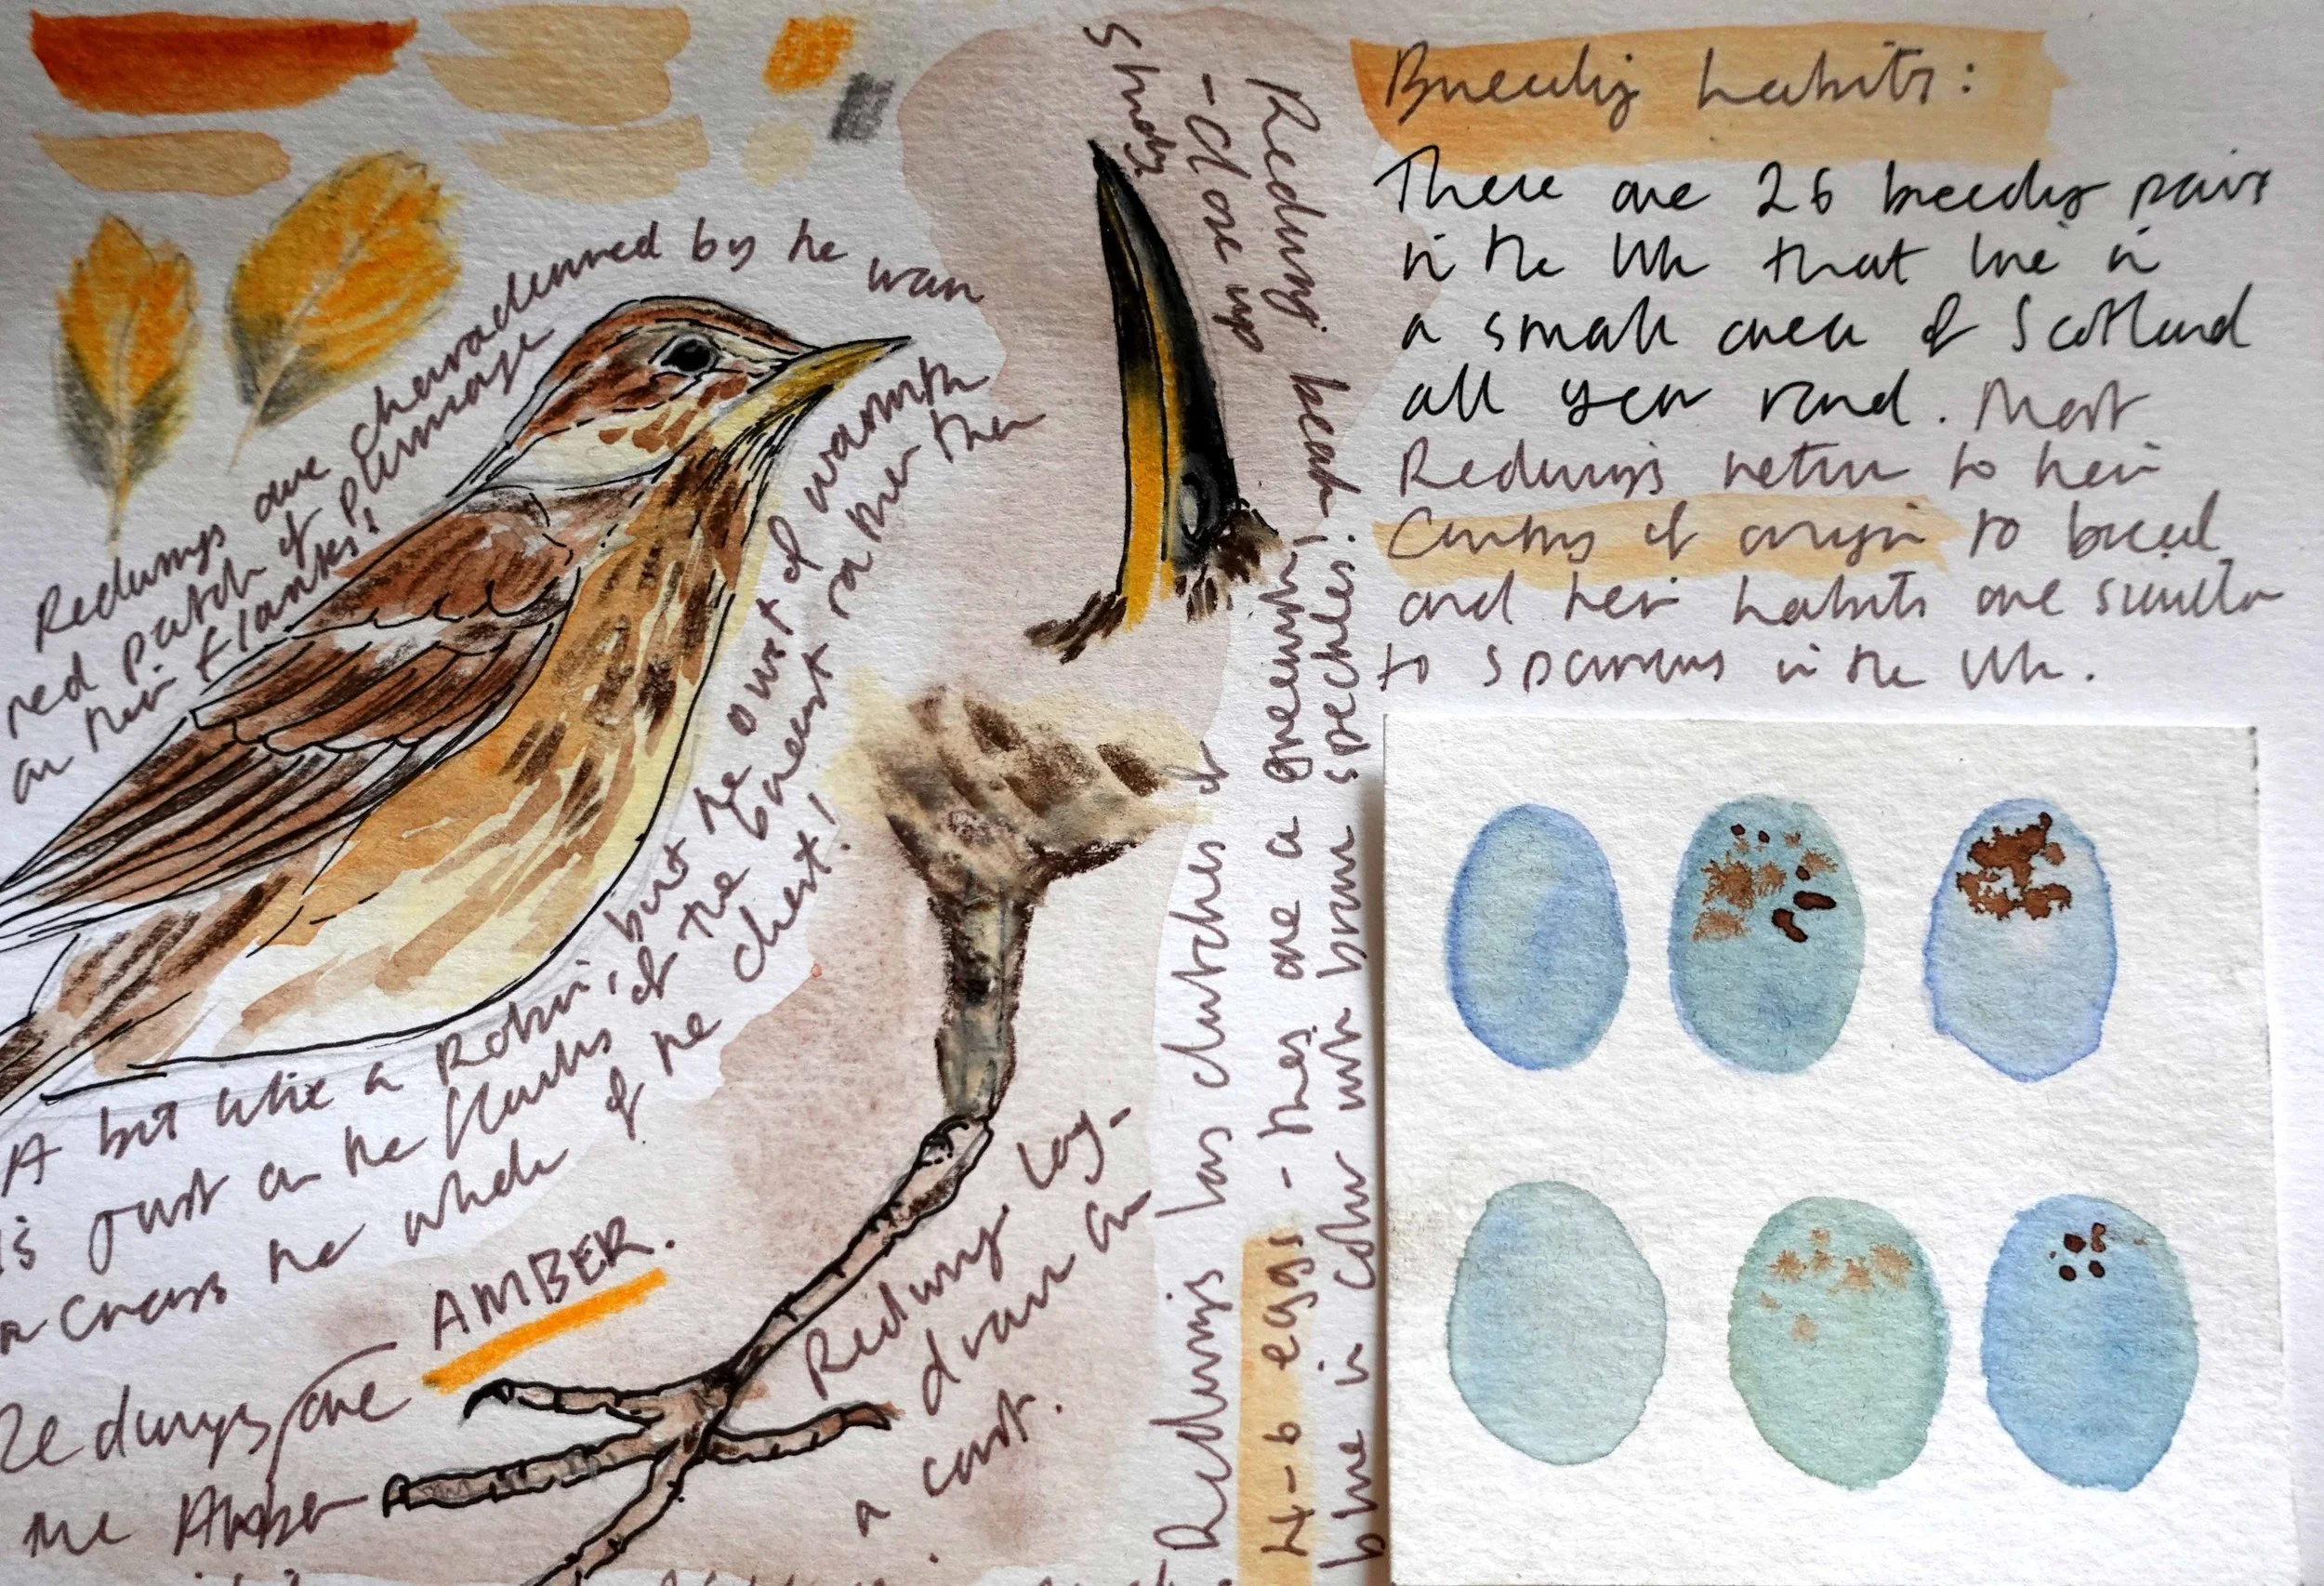 Redwings are characterised by the warm
red patch of plumage
on their flanks!
A bit like a Robin, but the owst of warmth
is just on the flanks of the breast rather than
across the whole of the chest!
Redwings are AMBER.
the Amber
Redwing beak
- close up
study.
Redwing leg -
drawn on
a cont.
Redwings lay clutches of
4-6 eggs - they are a greenish
blue in colour with brown speckles!
Breeding habits:
There are 26 breeding pairs
in the UK that live in
a small area of Scotland
all year round. Most
Redwings return to their
Country of origin to breed
and their habits are similar
to sparrows in the UK.